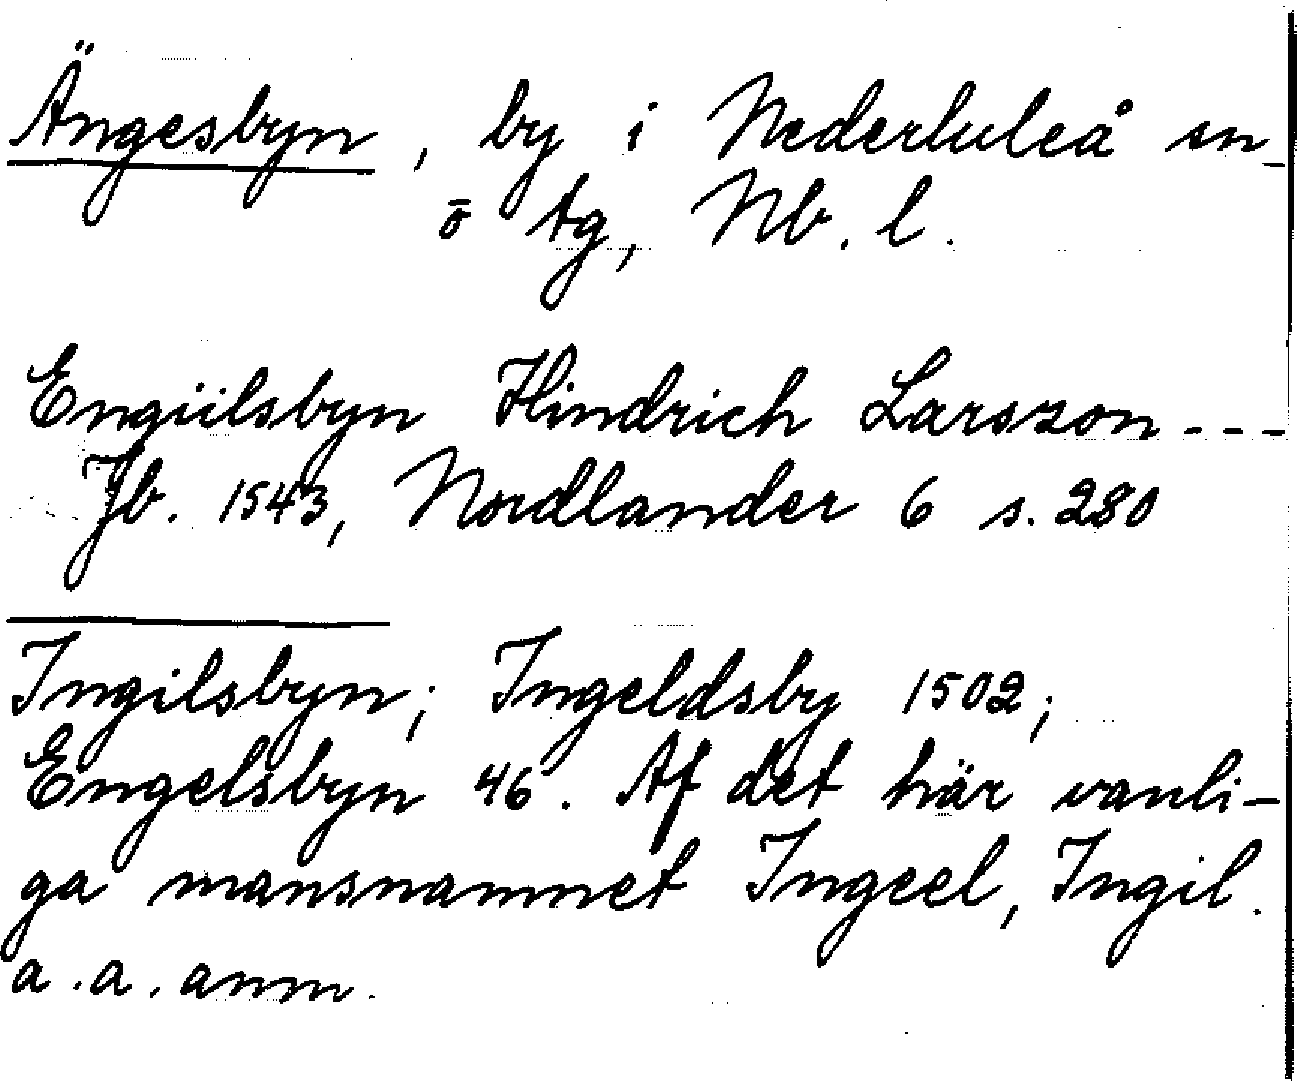 Ängesbyn, by i Nederluleå sn
o tg, Nb. l.
Engiilsbyn Hindrich Larszon ---
Jb. 1543, Nordlander 6 s. 280
Ingilsbyn; Ingeldsby 1502;
Engelsbyn 46. Af det här vanli-
ga mansnamnet Ingeel, Ingil.
a.a. anm.